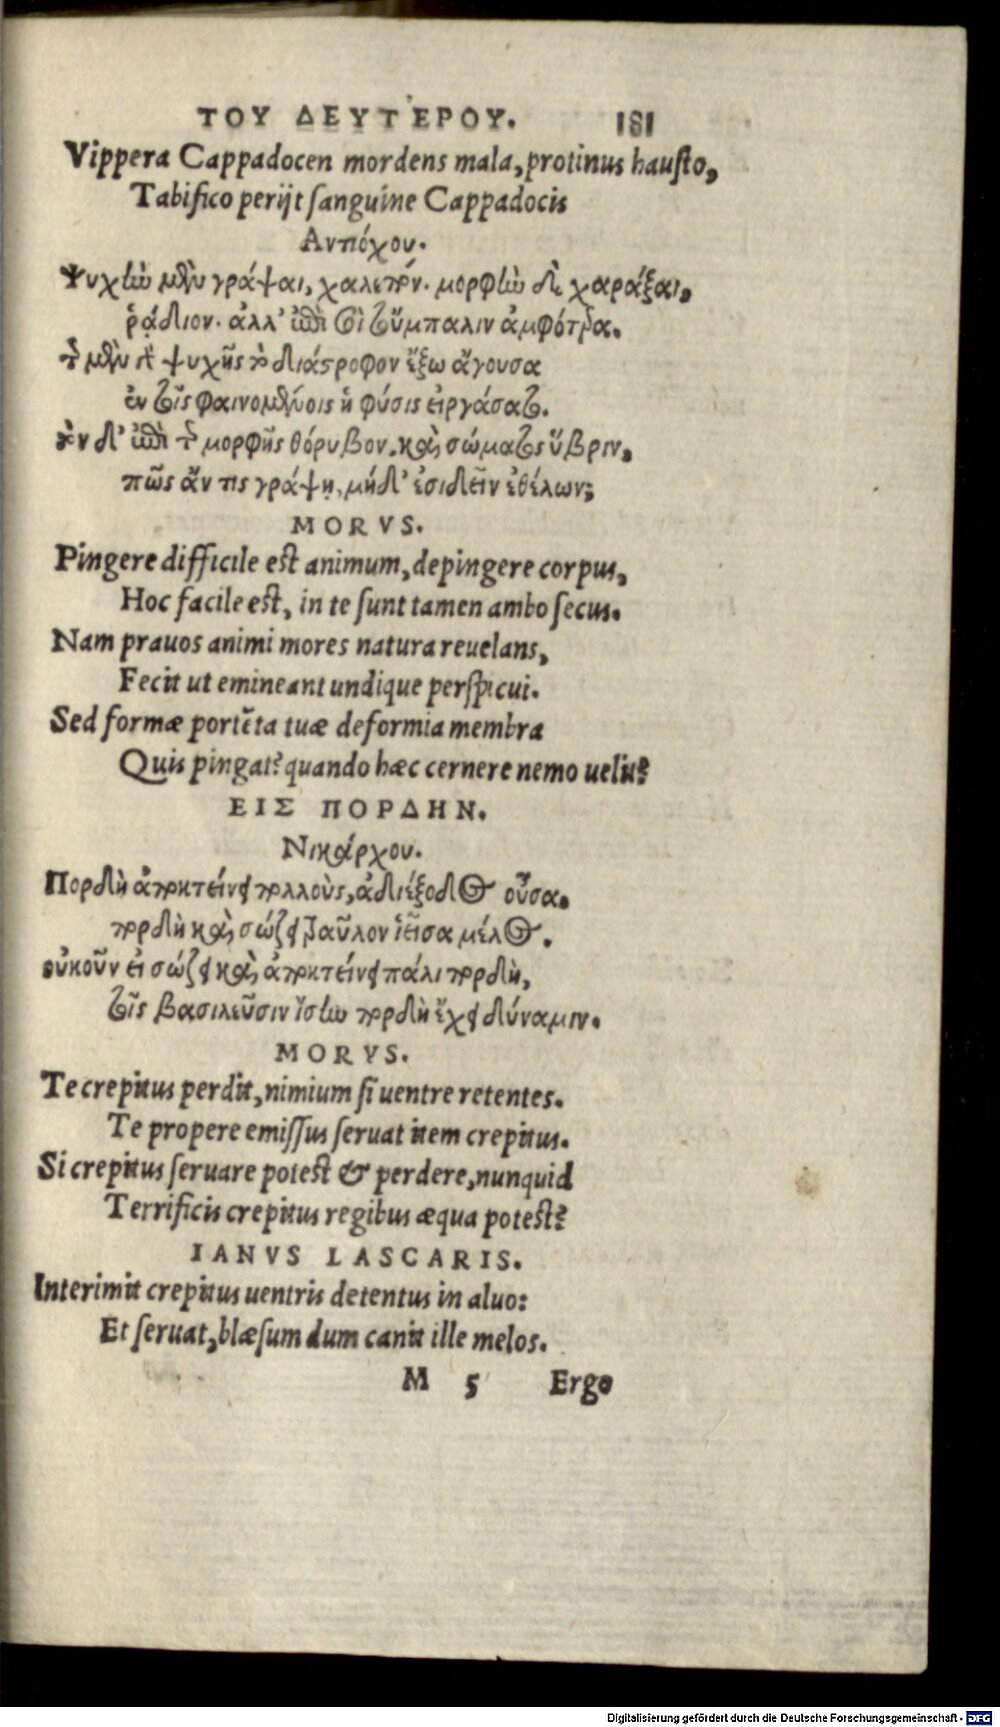 ΤΟΥ ΔΕΥΤΈΡΟΥ. 181
Vippera Cappadocen mordens mala, protinus hausto,
Tabifico perijt sanguine Cappadocis
Αντιόχου.
Ψυχὴν μὲν γράψαι, χαλεπόν. μορφὴν δὲ χαράξαι,
ῥᾴδιον. ἀλλ' ἐπὶ σοὶ τοὔμπαλιν ἀμφότερα.
τῆς μὲν γὰρ ψυχῆς τὸ διάστροφον ἔξω ἄγουσα
ἐν τοῖς φαινομένοις ἡ φύσις εἰργάσατο.
τὸν δ' ἐπὶ τῆς μορφῆς θόρυβον. καὶ σώματος ὕβριν,
πῶς ἄν τις γράψῃ, μήδ' ἐσιδεῖν ἐθέλων;
MORVS.
Pingere difficile est animum, depingere corpus,
Hoc facile est, in te sunt tamen ambo secus.
Nam prauos animi mores natura reuelans,
Fecit ut emineant undique perspicui.
Sed formæ portēta tuæ deformia membra
Quis pingat? quando hæc cernere nemo uelit?
ΕΙΣ ΠΟΡΔΗΝ.
Νικάρχου.
Πορδὴ ἀποκτείνει πολλοὺς, ἀδιέξοδος οὖσα.
πορδὴ καὶ σώζει τραῦλον ἱεῖσα μέλος.
οὐκοῦν εἰ σώζει καὶ ἀποκτείνει πάλι πορδὴ,
τοῖς βασιλεῦσιν ἴσην πορδὴ ἔχει δύναμιν.
MORVS.
Te crepitus perdit, nimium si uentre retentes.
Te propere emissus seruat item crepitus.
Si crepitus seruare potest & perdere, nunquid
Terrificis crepitus regibus æqua potest?
IANVS LASCARIS.
Interimit crepitus uentris detentus in aluo:
Et seruat, blæsum dum canit ille melos.
M 5 Ergo
Digitalisierung gefördert durch die Deutsche Forschungsgemeinschaft - DFG